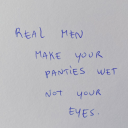 REAL MEN
MAKE YOUR
PANTIES WET
NOT YOUR
EYES.